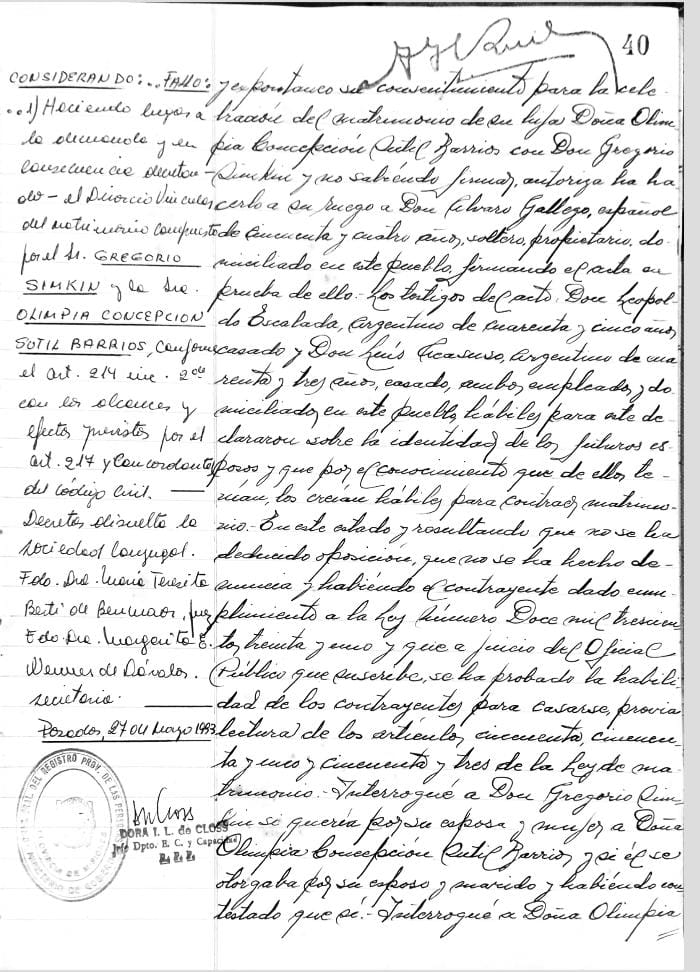 40
CONSIDERANDO:...FALLO:
...1) Haciendo lugar a
la demanda y en
consecuencia decretan-
do - el Divorcio Vincular
del matrimonio compuesto
por el Sr. GREGORIO
SIMKIN y la Sra.
OLIMPIA CONCEPCION
SUTIL BARRIOS, conforme
el art. 214 inc. 2do
con los alcances y
efectos previstos por el
art. 217 y concordantes
del Código Civil.
Decretar disuelta la
sociedad conyugal.
Fdo. Dra. María Teresita
Berti de
Fdo. Dra. Margarita E.
de Dávalos.
secretaria.
Posadas, 27 de Mayo
DORA I. L. de CLOSS
Jefe Dpto. E. C. y Capacidad
y expontaneo su consentimiento para la cele-
bración del matrimonio de su hija Doña Olim-
pia Concepción Sutil Barrios con Don Gregorio
Simkin y no sabiendo firmar, autoriza ha ha-
cerlo a su ruego a Don Alvaro Gallego, español
de cincuenta y cuatro años, soltero, propietario, do-
miciliado en este pueblo, firmando el acta en
prueba de ello.- Los testigos del acto. Don Leopol-
do Escalada, argentino de cuarenta y cinco años,
casado y Don Luis argentino de cua-
renta y tres años, casado, ambos empleados y do-
miciliados en este pueblo, hábiles para este de-
clararon sobre la identidad de los futuros es-
posos y que por el conocimiento que de ellos te-
nían, los creían hábiles para contraer matrimo-
nio.- En este estado y resultando que no se ha
deducido oposición, que no se ha hecho de-
nuncia y habiendo el contrayente dado cum-
plimiento a la Ley número Doce mil trescien-
tos treinta y uno y que a juicio del Oficial
Público que suscribe, se ha probado la habili-
dad de los contrayentes para casarse, previa
lectura de los artículos cincuenta, cincuen-
ta y uno y cincuenta y tres de la Ley de ma-
trimonio.- Interrogué a Don Gregorio Sim-
kin si quería por su esposa y mujer a Doña
Olimpia Concepción Sutil Barrios y si él se
otorgaba por su esposo y marido y habiendo con-
testado que sí.- Interrogué a Doña Olimpia